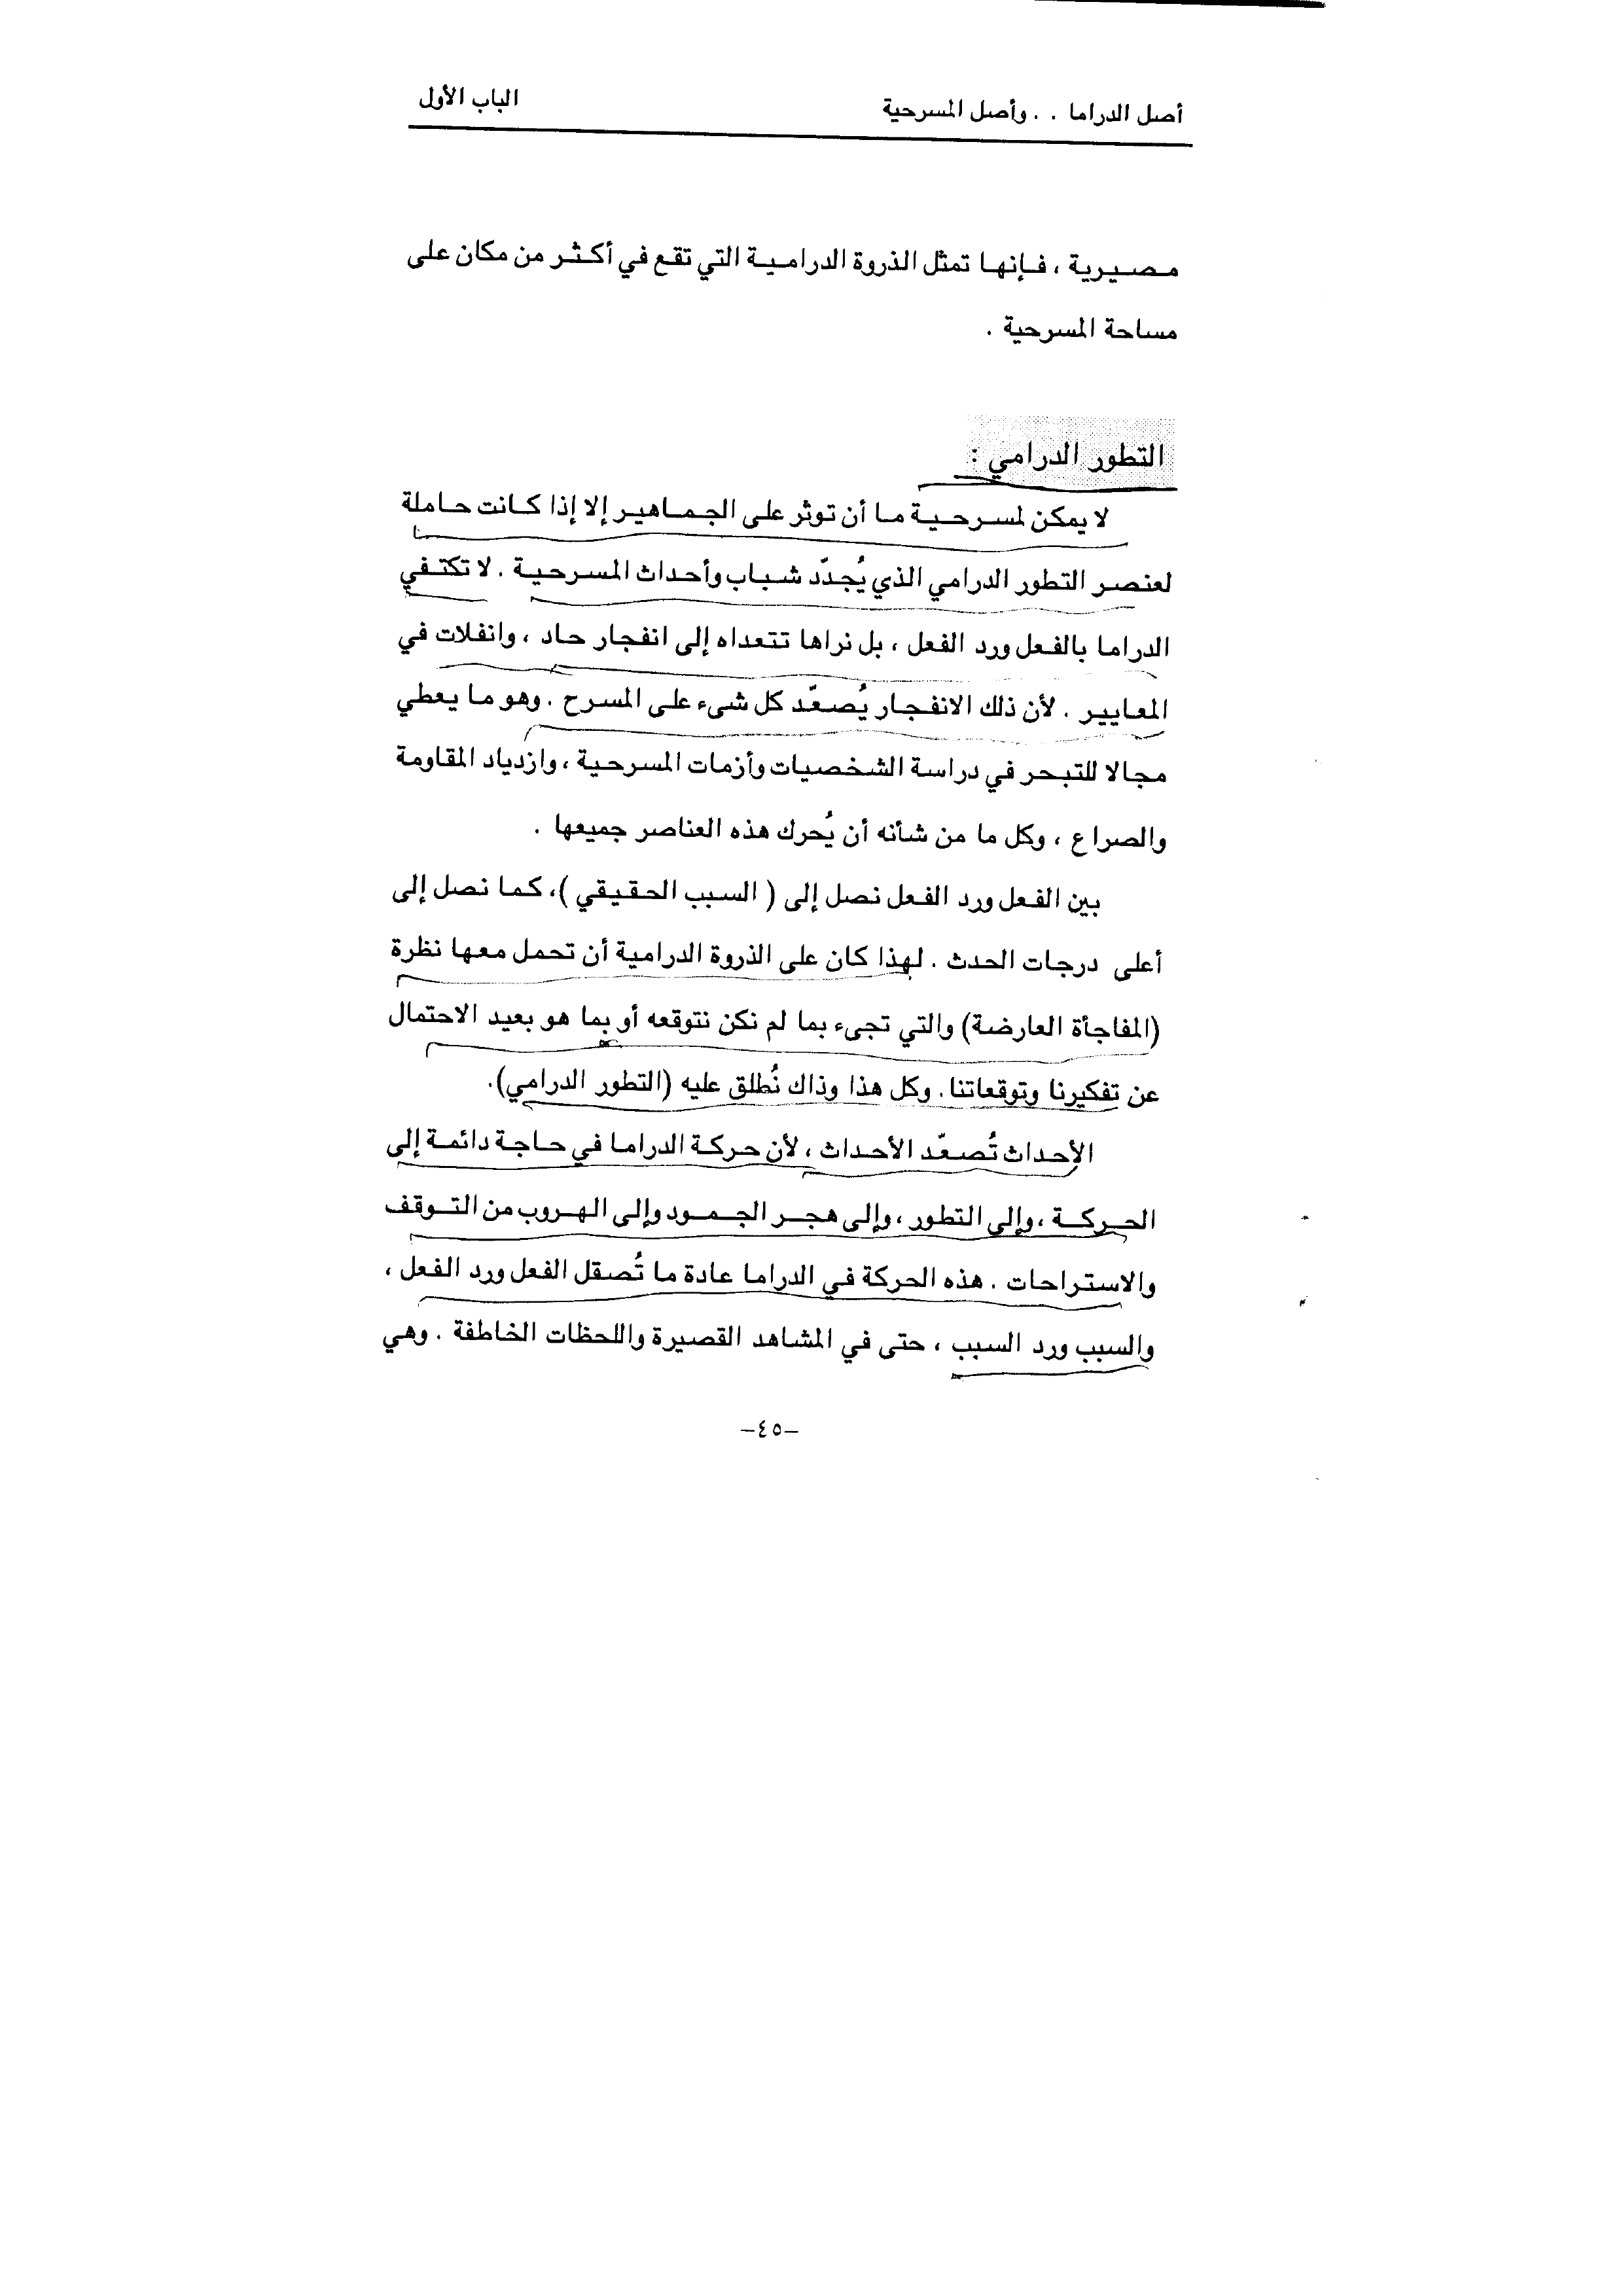 أصل الدراما . . وأصل المسرحية الباب الأول
مصيرية ، فإنها تمثل الذروة الدرامية التي تقع في أكثر من مكان على
مساحة المسرحية .
التطور الدرامي :
لا يمكن لمسرحية ما أن توثر على الجماهير إلا إذا كانت حاملة
لعنصر التطور الدرامي الذي يُجدّد شباب وأحداث المسرحية . لا تكتفي
الدراما بالفعل ورد الفعل ، بل نراها تتعداه إلى انفجار حاد ، وانفلات في
المعايير . لأن ذلك الانفجار يُصعّد كل شىء على المسرح . وهو ما يعطي
مجالا للتبحر في دراسة الشخصيات وأزمات المسرحية ، وازدياد المقاومة
والصراع ، وكل ما من شأنه أن يُحرك هذه العناصر جميعها .
بين الفعل ورد الفعل نصل إلى ( السبب الحقيقي )، كما نصل إلى
أعلى درجات الحدث . لهذا كان على الذروة الدرامية أن تحمل معها نظرة
(المفاجأة العارضة) والتي تجىء بما لم نكن نتوقعه أو بما هو بعيد الاحتمال
عن تفكيرنا وتوقعاتنا. وكل هذا وذاك نُطلق عليه (التطور الدرامي).
الأحداث تُصعّد الأحداث ، لأن حركة الدراما في حاجة دائمة إلى
الحركة ، وإلى التطور ، وإلى هجر الجمود وإلى الهروب من التوقف
والاستراحات . هذه الحركة في الدراما عادة ما تُصقل الفعل ورد الفعل ،
والسبب ورد السبب ، حتى في المشاهد القصيرة واللحظات الخاطفة . وهي
–٤٥–